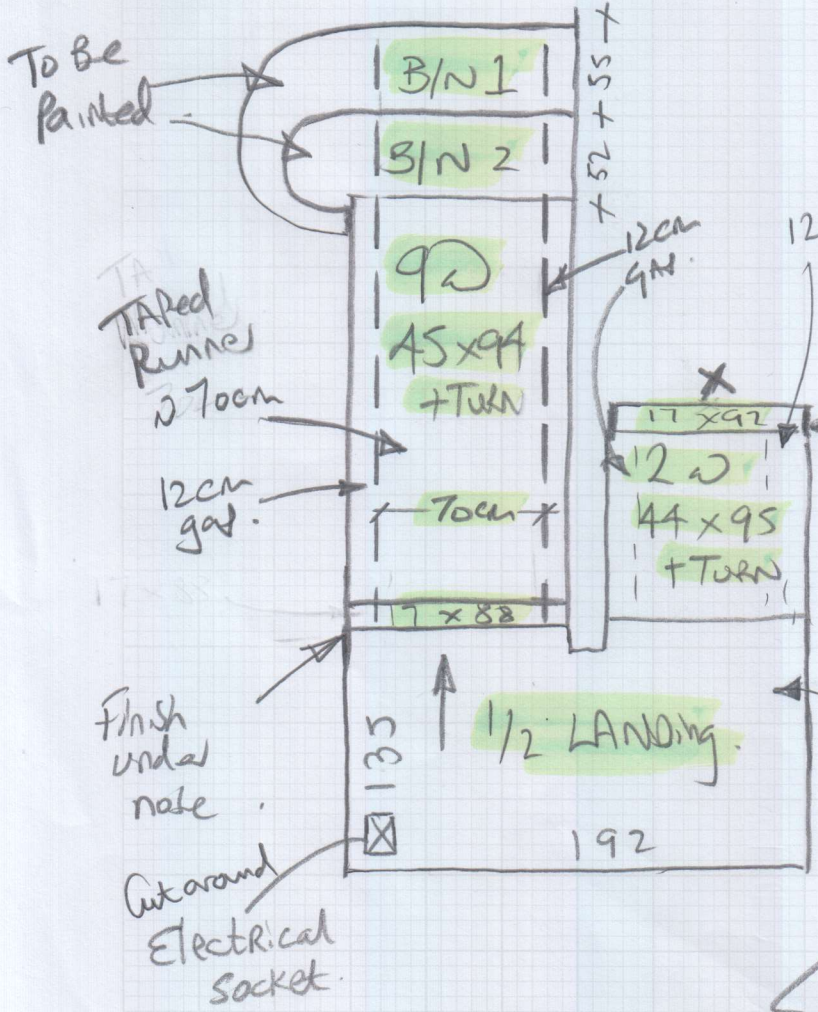 To Be
Painted
B/N 1
B/N 2
52 + 55
12cm
gap.
12
9W
45 x 94
+ TURN
TAPed
Runner
70cm
12cm
gap.
70cm
17 x 92
2W
44 x 95
+ TURN
17 x 88
Finish
under
nose
135
1/2 LANDing.
192
Cut around
ElectRical
Socket.